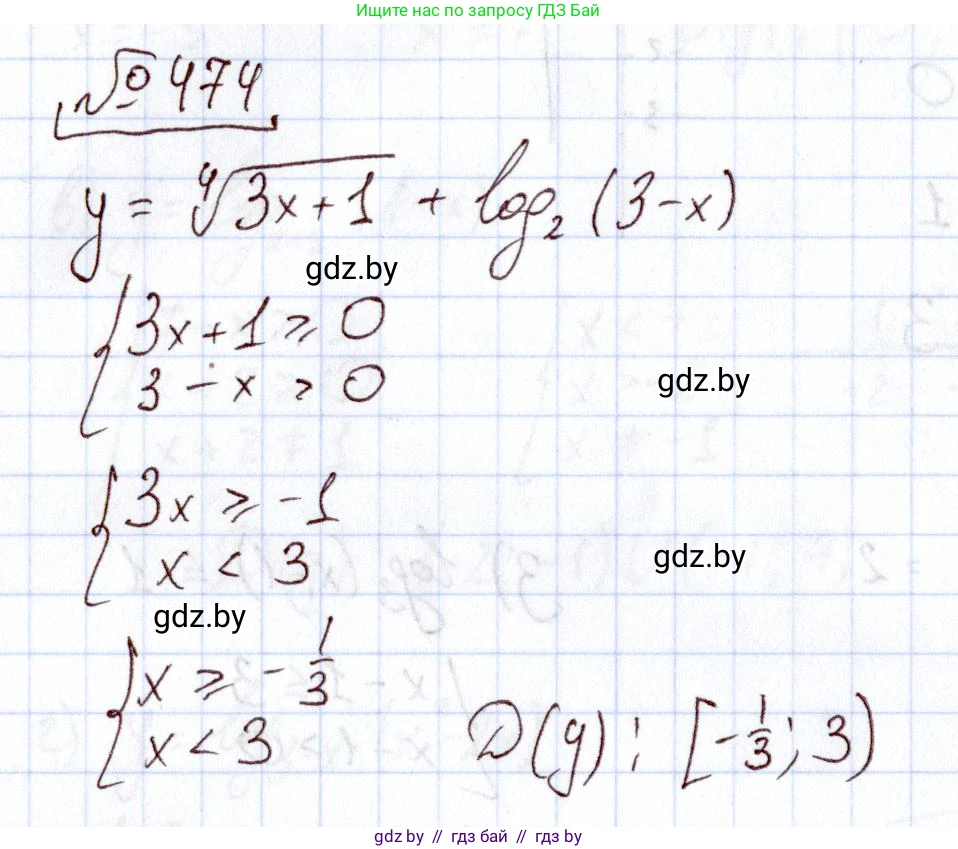 Ищите нас по запросу ГДЗ Бай
№ 474
y = ⁴√(3x+1) + log₂ (3-x)
gdz.by
{ 3x+1 ⩾ 0
3 - x > 0
gdz.by
{ 3x ⩾ -1
x < 3
gdz.by
gdz.by
{ x ⩾ - 1/3
x < 3 D(y) : [-1/3; 3)
gdz.by // гдз бай // гдз by